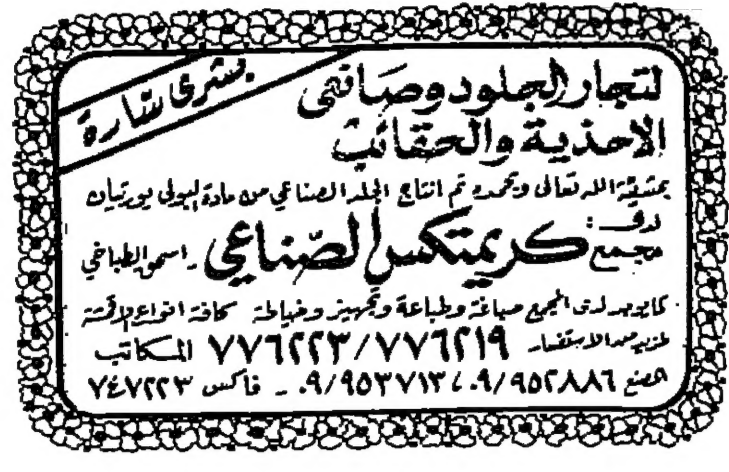 بشرى سارة
لتجار الجلود وصانعي
الأحذية والحقائب
بمشيئة الله تعالى وبحمده تم انتاج الجلد الصناعي من مادة البولي يورتيان
لدى:
مجمع كريمتكس الصناعي راسم الطباخي
كما يوجد لدى المجمع صباغة وطباعة وتجهيز وخياطة كافة انواع الاقمشة
لمزيد من الاستفسار ٧٧٦٢١٩/٧٧٦٢٢٣ المكاتب
المصنع ٠٩/٩٥٢٨٨٦ ، ٠٩/٩٥٣٧١٣ - فاكس ٧٤٧٢٢٣